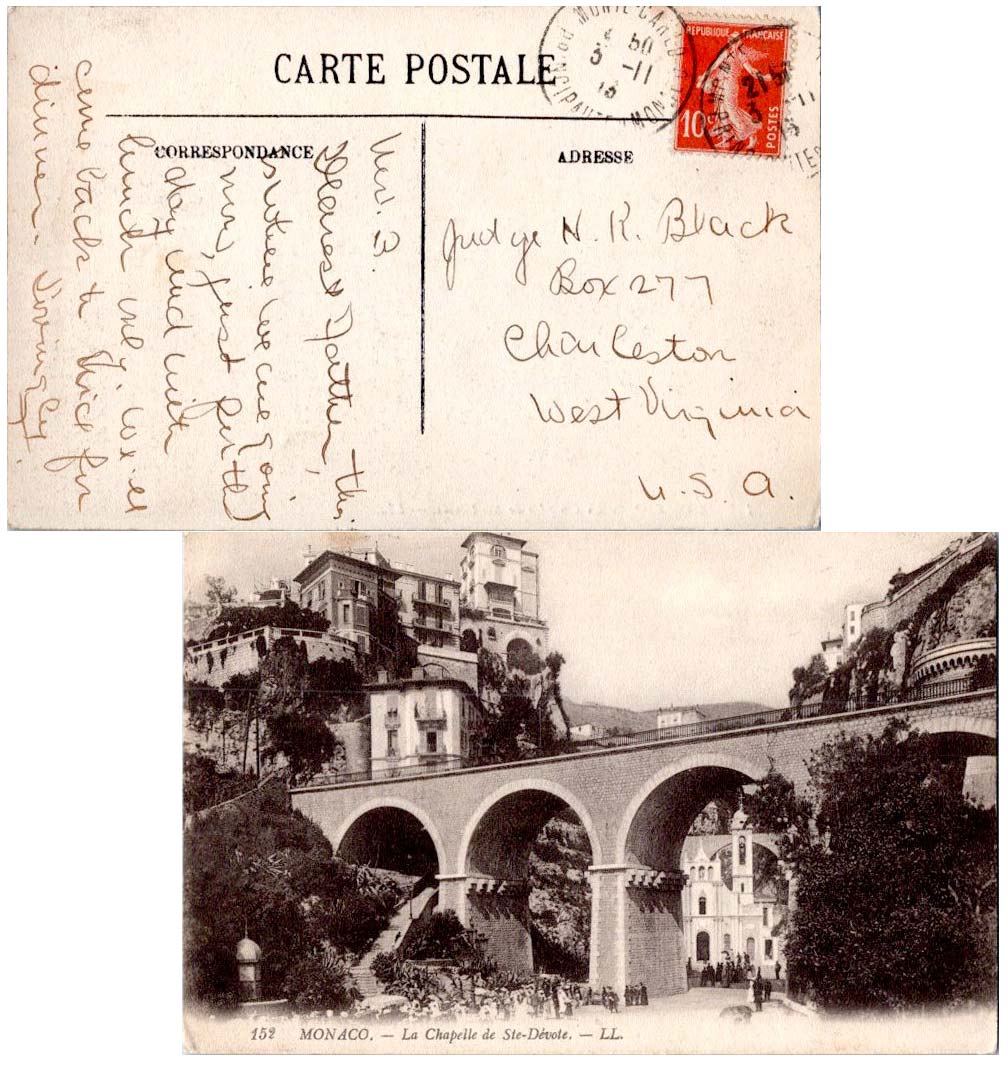 CARTE POSTALE
CORRESPONDANCE
ADRESSE
REPUBLIQUE FRANÇAISE
10c
POSTES
MONTE CARLO
5 -11
Nov. 3.
Dearest Father, this
is where we are going
now, just for the
day and with
lunch and we'll
come back to Nice for
dinner. Lovingly.
Judge N. K. Black
Box 277
Charleston
West Virginia
U. S. A.
152 MONACO. — La Chapelle de Ste-Dévote. — LL.